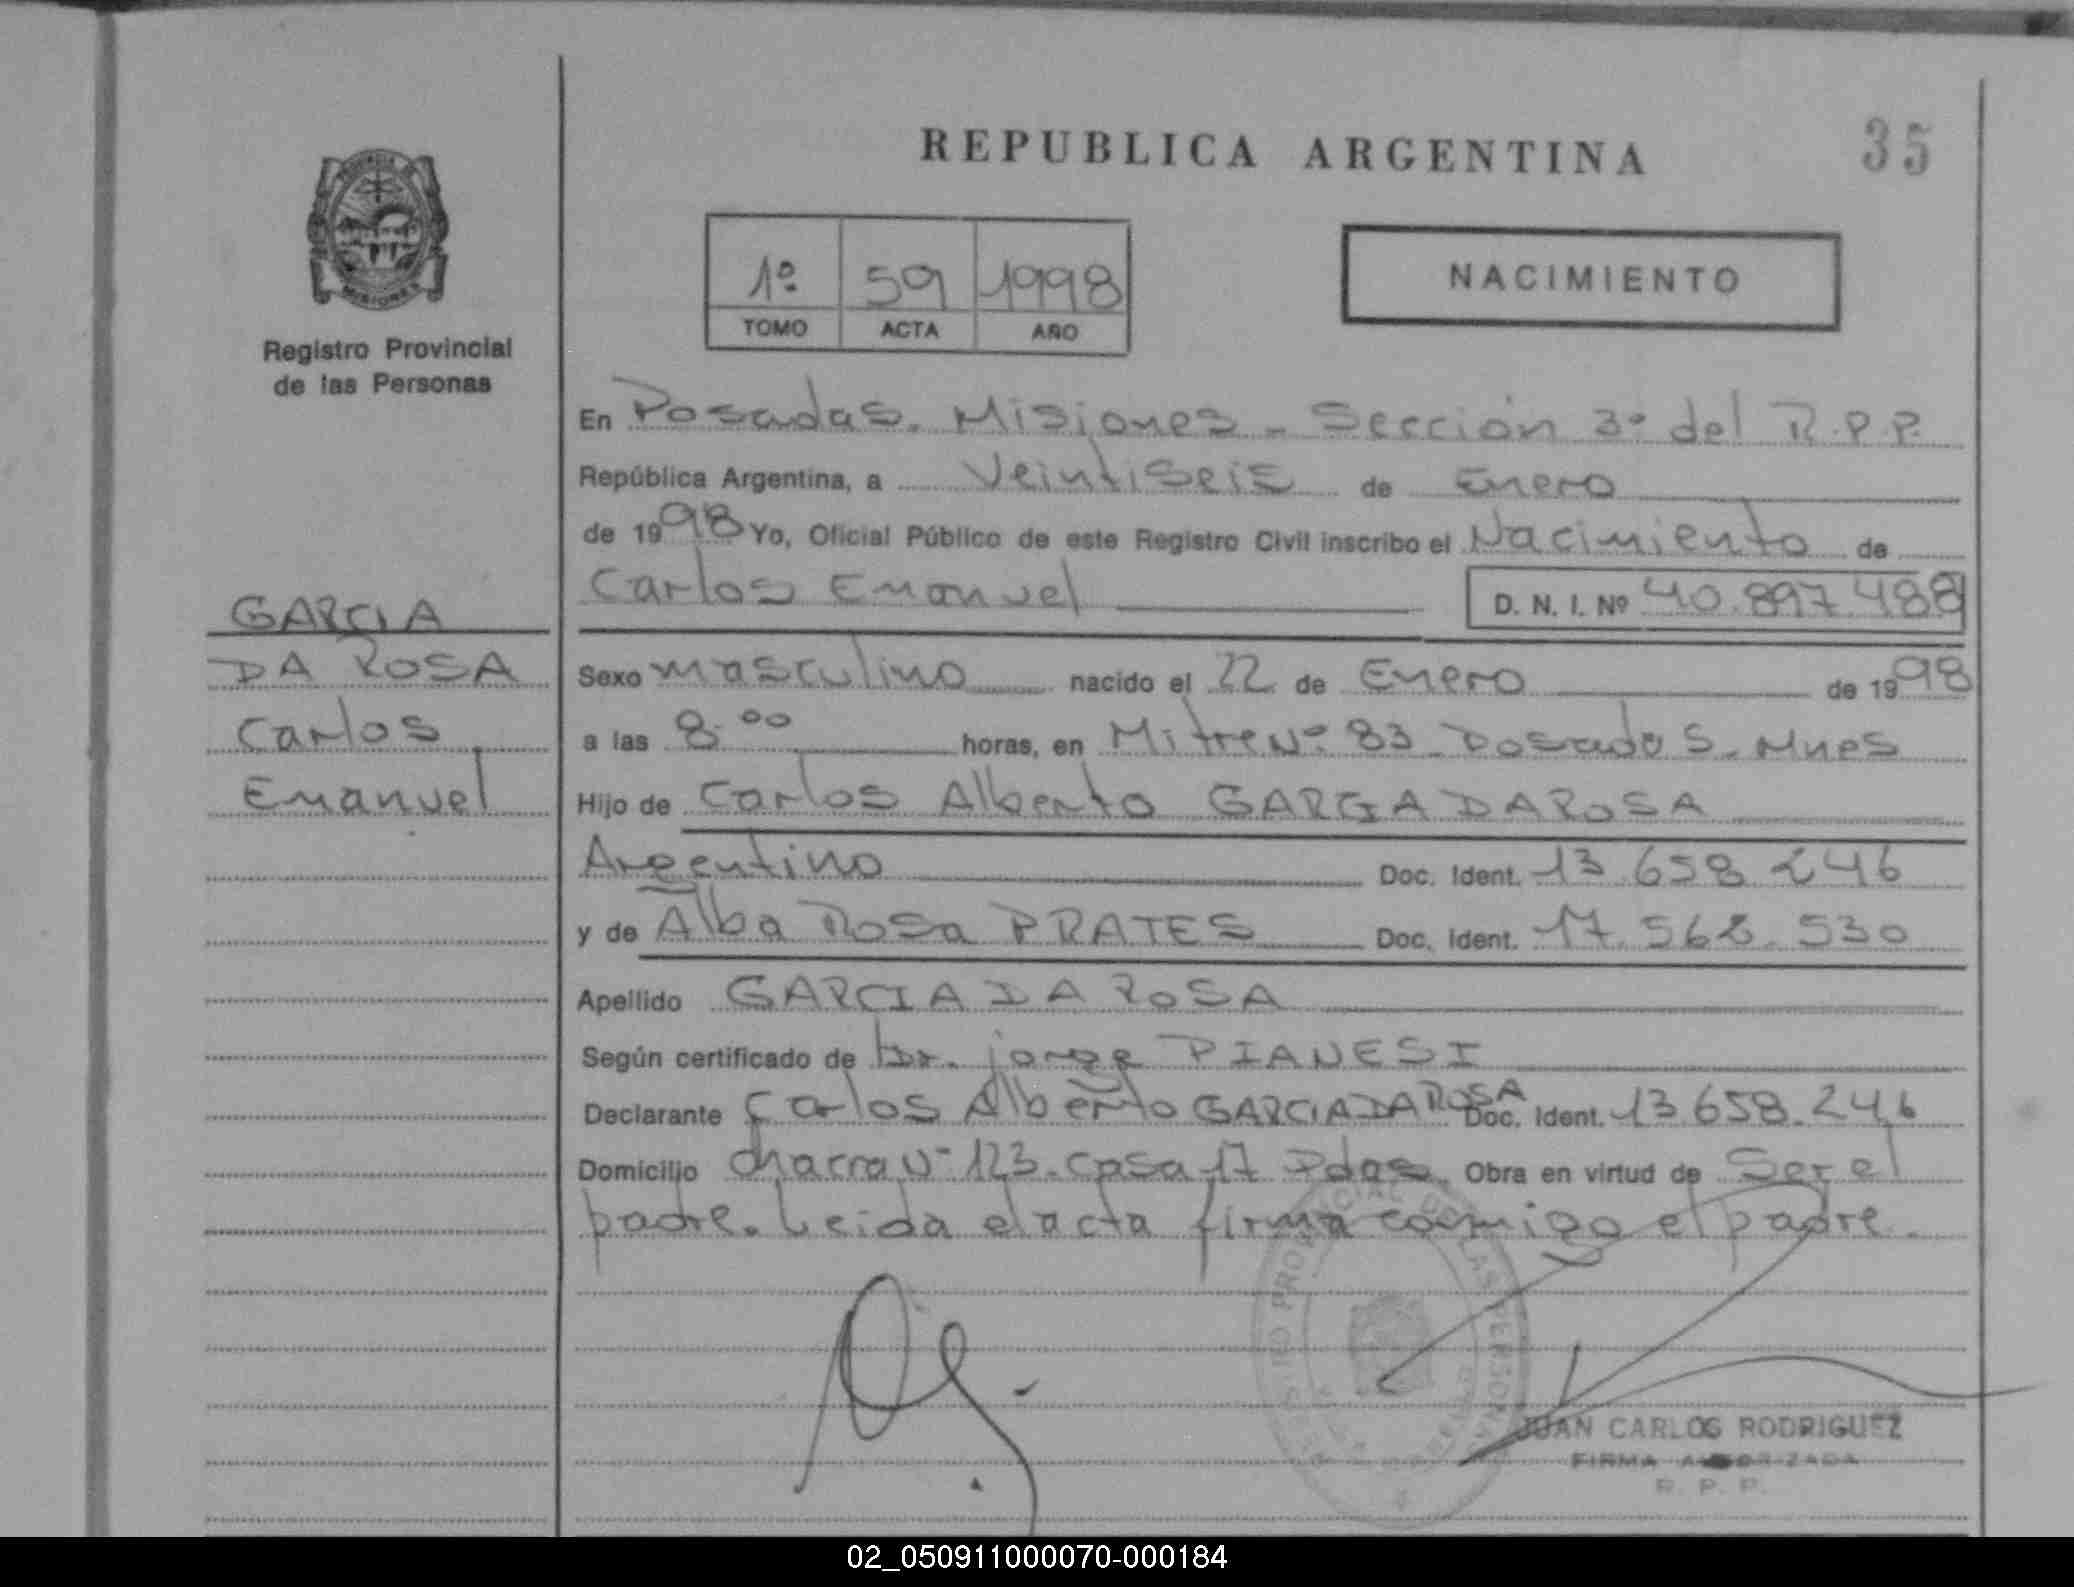 REPUBLICA ARGENTINA
35
MISIONES
Registro Provincial
de las Personas
1º 59 1998
TOMO ACTA AÑO
NACIMIENTO
En Posadas. Misiones - Sección 3º del R.P.P.
República Argentina, a Veintiseis de Enero
de 1998 Yo, Oficial Público de este Registro Civil inscribo el Nacimiento de
Carlos Emanuel D. N. I. Nº 40.897.488
GARCIA
DA ROSA
Carlos
Emanuel
Sexo masculino nacido el 22 de Enero de 1998
a las 8.00 horas, en Mitre Nº 83 Posadas. Mnes
Hijo de Carlos Alberto GARCIA DA ROSA
Argentino Doc. Ident. 13.658.246
y de Alba Rosa PRATES Doc. Ident. 17.562.530
Apellido GARCIA DA ROSA
Según certificado de Dr. jorge PIANESI
Declarante Carlos Alberto GARCIA DA ROSA Doc. Ident. 13.658.246
Domicilio chacra Nº 123. casa 17 Pdas. Obra en virtud de Ser el
padre. Leida el acta firma conmigo el padre.
JUAN CARLOS RODRIGUEZ
FIRMA AUTORIZADA
R. P. P.
02_050911000070-000184